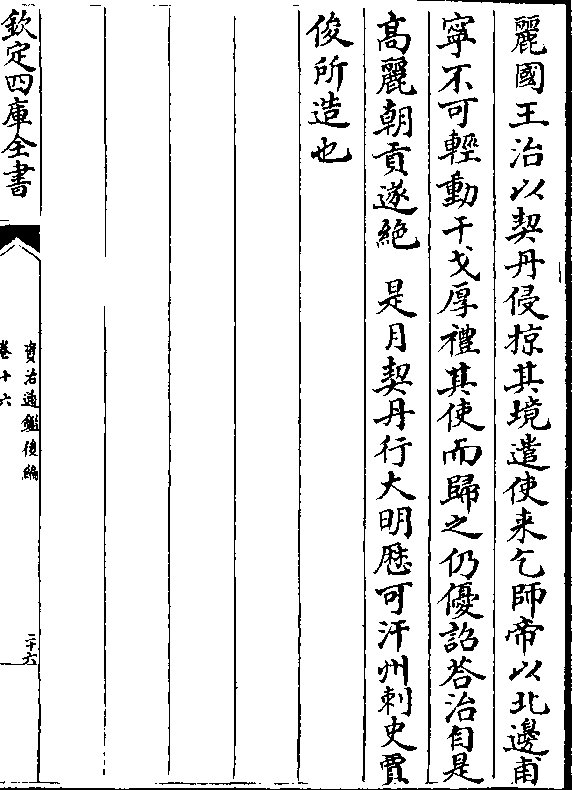 麗國王治以契丹侵掠其境遣使来乞師帝以北邊甫
寧不可輕動干戈厚禮其使而歸之仍優詔荅治自是
髙麗朝貢遂絶　是月契丹行大明厯可汗州刺史賈
俊所造也
欽定四庫全書
資治通鑑後編
卷十六
二十六